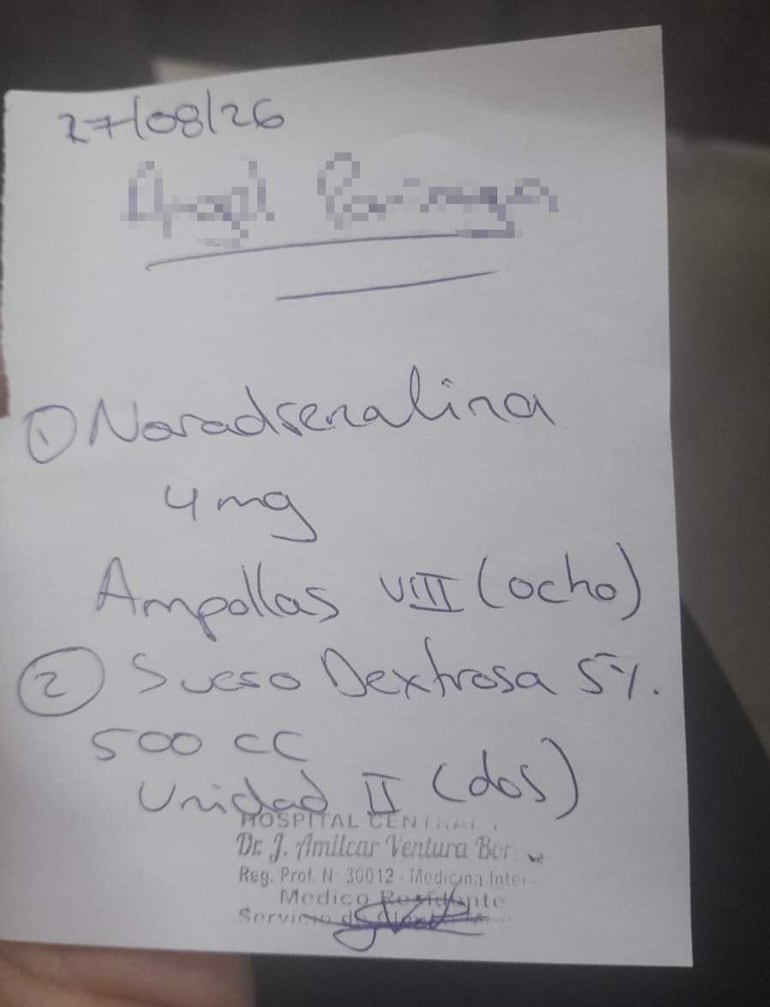 27/08/26
① Noradrenalina
4 mg
Ampollas VIII (ocho)
② Suero Dextrosa 5%.
500 cc
Unidad II (dos)
HOSPITAL CENTRAL
Dr. J. Amilcar Ventura
Reg. Prof. N 30012 - Medicina
Medico Residente
Servicio de